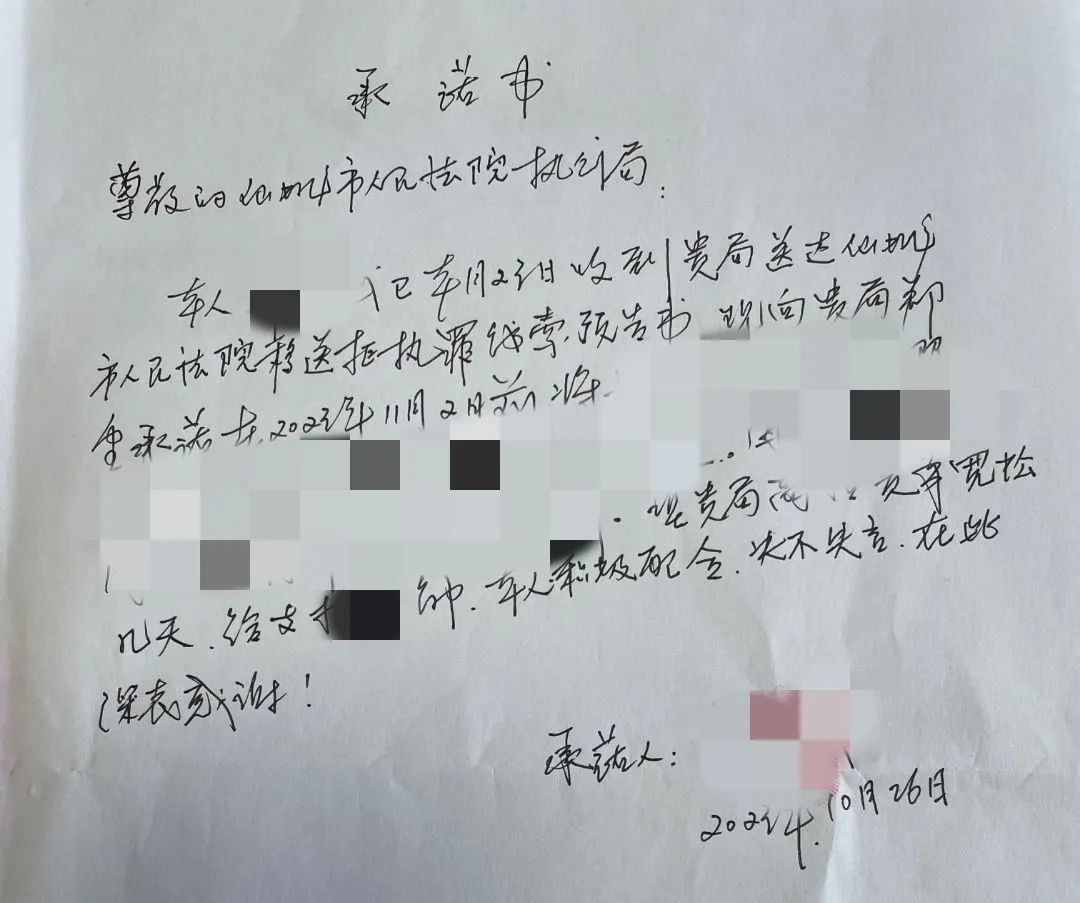 承诺书
尊敬的仙桃市人民法院执行局:
本人 已本月25日收到贵局送达仙桃
市人民法院移送拒执罪线索预告书 现向贵局郑
重承诺在2023年11月2日前将
望贵局 宽松
几天.给支 帥.本人积极配合.决不失言.在此
深表感谢!
承诺人:
2023年.10月26日